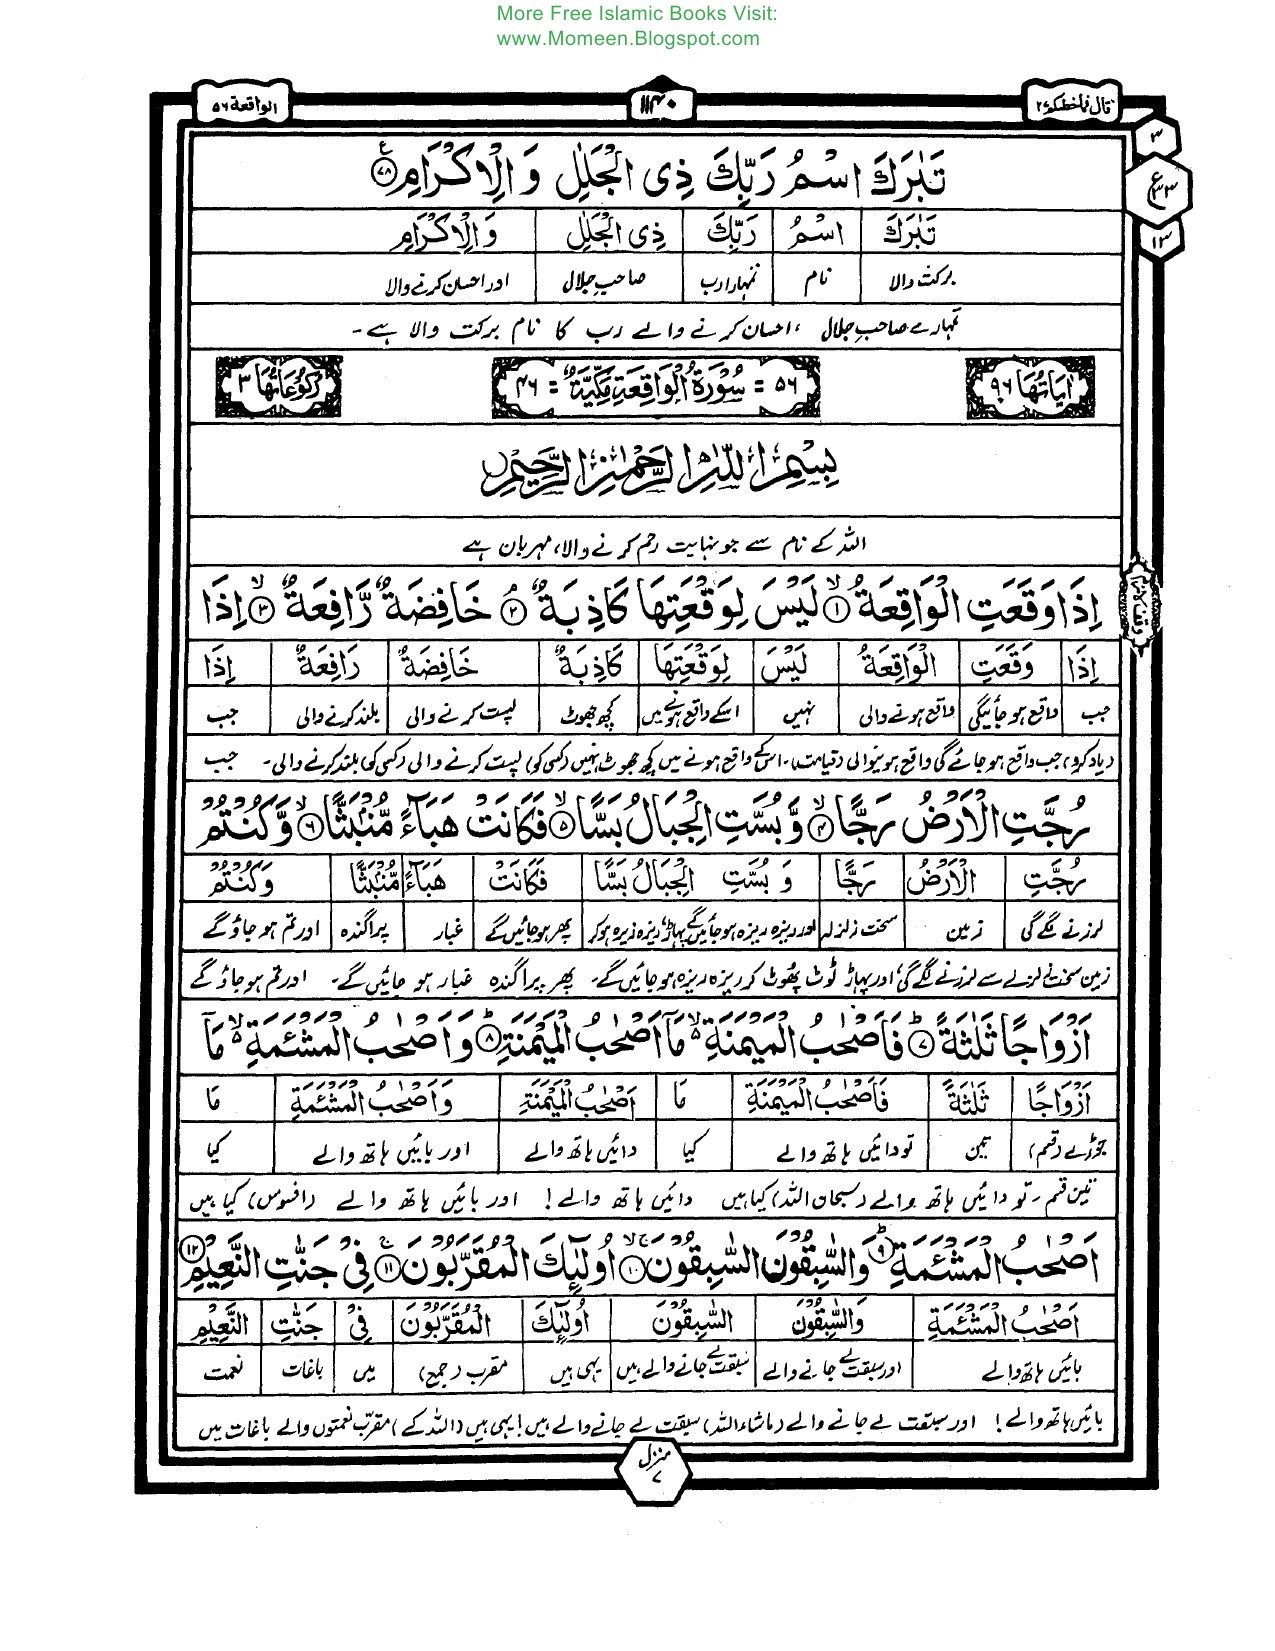 More Free Islamic Books Visit:
www.Momeen.Blogspot.com
قال فماخطبكم ۲۷ ۱۱۴۰ الواقعة ۵۶
۳
ع ۳۳
۱۳
تَبٰرَكَ اسْمُ رَبِّكَ ذِی الْجَلٰلِ وَ الْاِكْرَامِ ﴿۷۸﴾ ع
تَبٰرَكَ اسْمُ رَبِّكَ ذِی الْجَلٰلِ وَالْاِكْرَامِ
برکت والا نام تمہارا رب صاحبِ جلال اور احسان کرنے والا
تمہارے صاحبِ جلال ، احسان کرنے والے رب کا نام برکت والا ہے۔
اٰیَاتُهَا ۹۶ ۵۶ = سُوْرَةُ الْوَاقِعَةِ مَكِّیَّةٌ = ۴۶ رُكُوْعَاتُهَا ۳
بِسْمِ اللّٰهِ الرَّحْمٰنِ الرَّحِیْمِ
اللہ کے نام سے جو نہایت رحم کرنے والا، مہربان ہے
اِذَا وَقَعَتِ الْوَاقِعَةُ ۙ﴿۱﴾ لَیْسَ لِوَقْعَتِهَا كَاذِبَةٌ ۘ﴿۲﴾ خَافِضَةٌ رَّافِعَةٌ ۙ﴿۳﴾ اِذَا
اِذَا وَقَعَتِ الْوَاقِعَةُ لَیْسَ لِوَقْعَتِهَا كَاذِبَةٌ خَافِضَةٌ رَافِعَةٌ اِذَا
جب واقع ہو جائیگی واقع ہونے والی نہیں اسکے واقع ہونے میں کچھ جھوٹ پست کرنے والی بلند کرنے والی جب
(یاد کرو) جب واقع ہو جائے گی واقع ہونیوالی (قیامت)۔ اس کے واقع ہونے میں کچھ جھوٹ نہیں (کسی کو) پست کرنے والی (کسی کو) بلند کرنے والی۔ جب
رُجَّتِ الْاَرْضُ رَجًّا ۙ﴿۴﴾ وَّ بُسَّتِ الْجِبَالُ بَسًّا ۙ﴿۵﴾ فَكَانَتْ هَبَآءً مُّنْۢبَثًّا ۙ﴿۶﴾ وَّ كُنْتُمْ
رُجَّتِ الْاَرْضُ رَجًّا وَ بُسَّتِ الْجِبَالُ بَسًّا فَكَانَتْ هَبَآءً مُّنْۢبَثًّا وَكُنْتُمْ
لرزنے لگے گی زمین سخت زلزلہ اور ریزہ ریزہ ہو جائیں گے پہاڑ ریزہ ریزہ ہو کر پھر ہو جائیں گے غبار پراگندہ اور تم ہو جاؤ گے
زمین سخت زلزلے سے لرزنے لگے گی، اور پہاڑ ٹوٹ پھوٹ کر ریزہ ریزہ ہو جائیں گے۔ پھر پراگندہ غبار ہو جائیں گے۔ اور تم ہو جاؤ گے
اَزْوَاجًا ثَلٰثَةً ؕ﴿۷﴾ فَاَصْحٰبُ الْمَیْمَنَةِ ۙ۬ مَاۤ اَصْحٰبُ الْمَیْمَنَةِ ؕ﴿۸﴾ وَ اَصْحٰبُ الْمَشْـَٔمَةِ ۙ۬ مَاۤ
اَزْوَاجًا ثَلٰثَةً فَاَصْحٰبُ الْمَیْمَنَةِ مَا اَصْحٰبُ الْمَیْمَنَةِ وَاَصْحٰبُ الْمَشْئَمَةِ مَا
جوڑے (قسم) تین تو دائیں ہاتھ والے کیا دائیں ہاتھ والے اور بائیں ہاتھ والے کیا
تین قسم ۔ تو دائیں ہاتھ والے (سبحان اللہ) کیا ہیں دائیں ہاتھ والے! اور بائیں ہاتھ والے (افسوس) کیا ہیں
اَصْحٰبُ الْمَشْـَٔمَةِ ؕ﴿۹﴾ وَالسّٰبِقُوْنَ السّٰبِقُوْنَ ۚۙ﴿۱۰﴾ اُولٰٓئِكَ الْمُقَرَّبُوْنَ ۚ﴿۱۱﴾ فِیْ جَنّٰتِ النَّعِیْمِ ﴿۱۲﴾
اَصْحٰبُ الْمَشْئَمَةِ وَالسّٰبِقُوْنَ السّٰبِقُوْنَ اُولٰٓئِكَ الْمُقَرَّبُوْنَ فِیْ جَنّٰتِ النَّعِیْمِ
بائیں ہاتھ والے اور سبقت لے جانے والے سبقت لے جانے والے ہیں یہی ہیں مقرب (جمع) میں باغات نعمت
بائیں ہاتھ والے! اور سبقت لے جانے والے (ماشاء اللہ) سبقت لے جانے والے ہیں! یہی ہیں (اللہ کے) مقرب نعمتوں والے باغات میں
منزل ۷